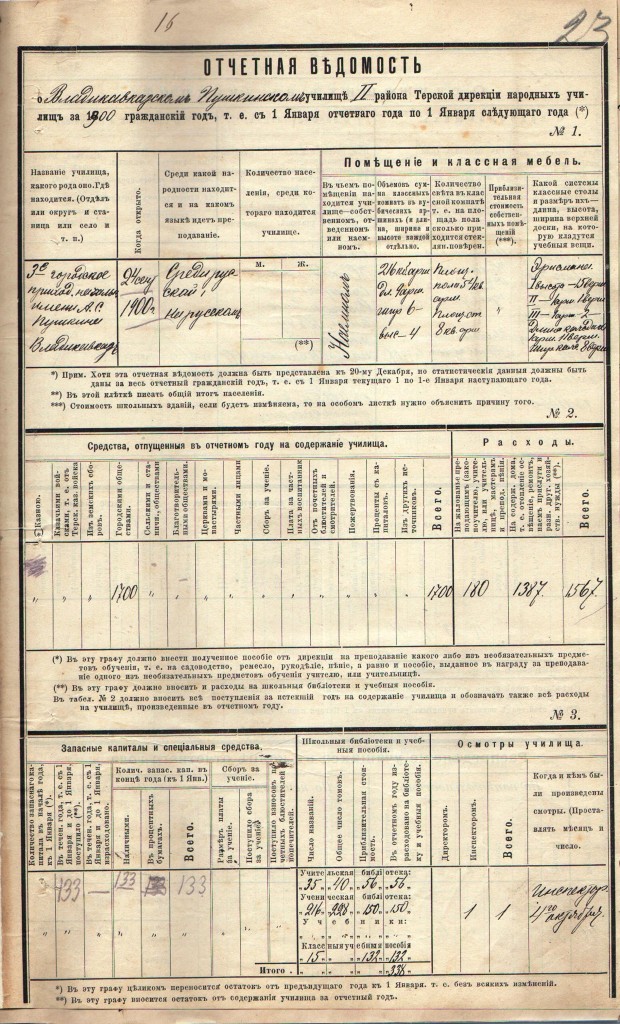 16
23
ОТЧЕТНАЯ ВѢДОМОСТЬ
о Владикавказскомъ Пушкинскомъ училищѣ II района Терской дирекціи народныхъ учи-
лищъ за 1900 гражданскій годъ, т. е. съ 1 Января отчетнаго года по 1 Января слѣдующаго года (*)
№ 1.
Названіе училища, какого рода оно. Гдѣ находится. (Отдѣлъ или округъ и станица или село и т. п.)
Когда открыто.
Среди какой народности находится и на какомъ языкѣ идетъ преподаваніе.
Количество населенія, среди котораго находится училище.
Помѣщеніе и классная мебель.
Въ чьемъ помѣщеніи находится училище—собственномъ, отведенномъ или наемномъ.
Объемъ сумма классныхъ комнатъ въ кубическихъ аршинахъ (и длина, ширина и высота каждой отдѣльно.
Количество свѣта въ классной комнатѣ т. е. на площадь пола сколько приходится стеклян. поверхн.
Приблизительная стоимость собственныхъ помѣщеній (***).
Какой системы классные столы и размѣръ ихъ—длина, высота, ширина верхней доски, на которую кладутся учебныя вещи.
м. ж.
3е городское
приход. начальн.
имени А.С.
Пушкина
Владикавказъ
24 сен
1900 г.
Среди рус
ской;
На русскомъ
(**)
Наемномъ
выс—4
8 кв. арш
*) Прим. Хотя эта отчетная вѣдомость должна быть представлена къ 20-му Декабря, но статистическія данныя должны быть
даны за весь отчетный гражданскій годъ, т. е. съ 1 Января текущаго года 1 по 1-е Января наступающаго года.
**) Въ этой клѣткѣ писать общій итогъ населенія.
***) Стоимость школьныхъ зданій, если будетъ измѣняема, то на особомъ листкѣ нужно объяснить причину того.
№ 2.
Средства, отпущенныя въ отчетномъ году на содержаніе училища.
Расходы.
Казною.
Казачьими войсками, т. е. отъ Терск. каз. войска
Изъ земскихъ сборовъ.
Городскими обществами.
Сельскими и станичн., обществами
Благотворительными обществами.
Церквами и монастырями.
Частными лицами
Сборъ за ученіе.
Плата за частныхъ воспитанник
Отъ почетныхъ блюстителей и смотрителей.
Пожертвованія.
Проценты съ капиталовъ.
Изъ другихъ источниковъ.
Всего.
На жалованье преподавщимъ (законоучителю, учителю, или учительницѣ, мастерамъ и препод. пѣнія.
На содерж. дома, т. е. отопленіе освѣщеніе, ремонтъ, наемъ прислуги и разн. друг. хозяйств. нужды (**).
Всего.
" " " 1700 " " " " " " " " " " 1700 180 1387. 1567.
(*) Въ эту графу должно внести полученное пособіе отъ дирекціи на преподаваніе какого либо изъ необязательныхъ предме-
товъ обученія, т. е. на садоводство, ремесло, рукодѣліе, пѣніе, а равно и пособіе, выданное въ награду за преподава-
ніе одного изъ необязательныхъ предметовъ обученія учителю, или учительницѣ.
(**) Въ эту графу должно вносить и расходы на школьныя библіотеки и учебныя пособія.
Въ табел. № 2 должно вносить всѣ поступленія за истекшій годъ на содержаніе училища и обозначать также всѣ расходы
на училище, произведенные въ отчетномъ году.
№ 3.
Запасные капиталы и спеціальныя средства.
Школьныя библіотеки и учебныя пособія.
Осмотры училища.
Количество запаснаго капитала въ началѣ года къ 1 Января (*).
Въ течен. года, т. е. съ 1 Января и до 1 Января, поступило (**)
Въ течен. года, т. е. съ 1 Января и до 1 Января, израсходовано.
Колич. запас. кап. въ концѣ года (къ 1 Янв.)
Наличными.
Въ процентныхъ бумагахъ.
Всего.
Сборъ за ученіе.
Размѣръ платы за ученіе.
Поступило сбора за ученіе.
Поступило взносовъ почетныхъ блюстителей попечителей.
Число названій.
Общее число томовъ.
Приблизительная стоимость.
Въ отчетномъ году израсходовано на библіотеку и учебныя пособія.
Директоромъ.
Инспекторомъ.
Всего.
Когда и кѣмъ были произведены смотры. (Проставлять мѣсяцъ и число.
133 — 133 133
Учительская библіотека:
35 " 40 " 56 " 56 "
Ученическая библіотека:
216 " 228 " 150 " 150 "
Учебники:
" " " "
Классныя учебныя пособія
" 15 " " 132 " 132
Итого . " " " 338
1 1
Инспектор.
4го октября.
*) Въ эту графу цѣликомъ переносится остатокъ отъ предыдущаго года къ 1 Января. т. с. безъ всякихъ измѣненій.
**) Въ эту графу вносится остатокъ отъ содержанія училища за отчетный годъ.